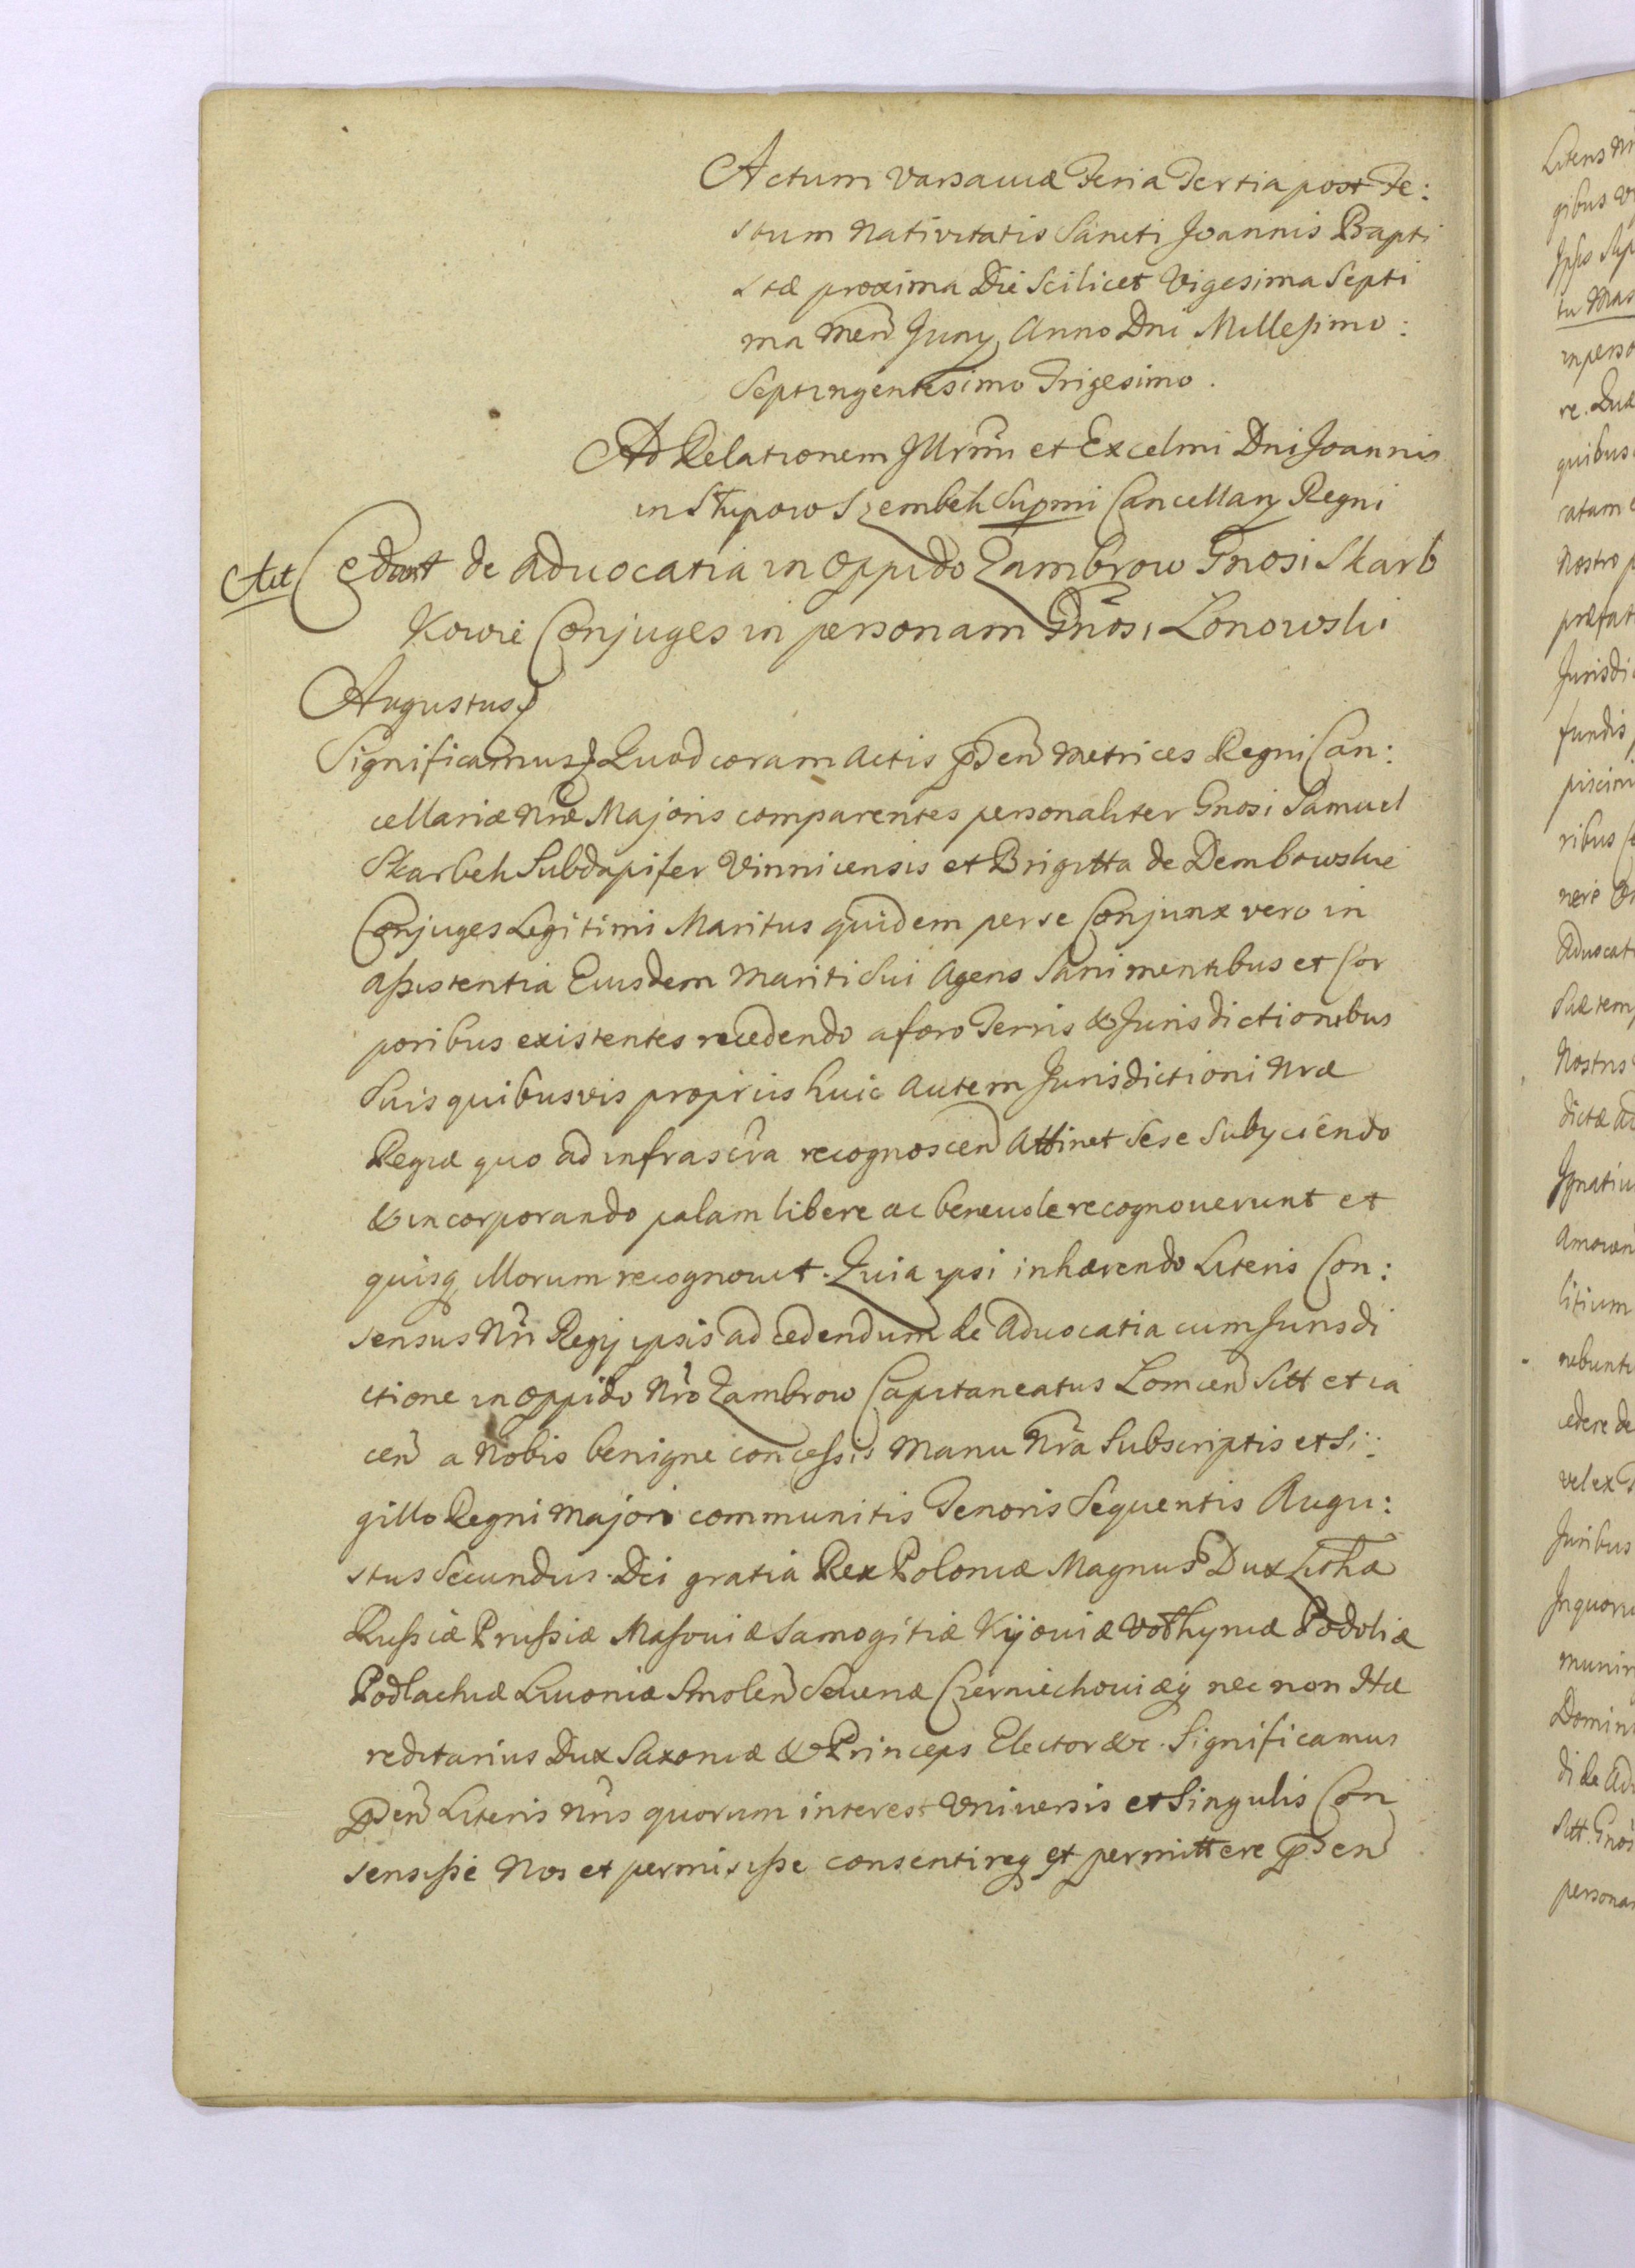 Actum Varsaviæ Feria Tertia post Fe:
stum Nativitatis Sancti Joannis Bapti
stæ proxima Die Scilicet Vigesima Septi
ma Men Juny Anno Dni Millesimo:
Septingentesimo Trigesimo.
Ad Relationem Illrmi et Excelmi Dni Joannis
in Słupow Szembek Supmi Cancellary Regni
Cedunt de Advocatia in Oppido Zambrow Gnosi Skarb
kowie Conjuges in personam Gnosi Lonowski
Augustus
Significamus Quod coram Actis pnden Metrices Regni Can:
cellariæ Nræ Majoris comparentes personaliter Gnosi Samuel
Skarbek Subdapifer Vinnicensis et Brigitta de Dembowskie
Conjuges Legitimi Maritus quidem per se Conjunx vero in
assistentia Eiusdem Mariti Sui Agens Sani mentibus et Cor
poribus existentes recedendo a foro Terris & Jurisdictionibus
Suis quibusvis proprijs huic autem Jurisdictioni Nræ
Regiæ quo ad infrascra recognoscen Attinet Sese Subyciendo
& incorporando palam libere ac benevole recognoverunt et
quisq illorum recognovit. Quia ipsi inhærendo Literis Con:
sensus Nri Regij ipsis ad cedendum de Advocatia cum Jurisdi
ctione in Oppido Nro Zambrow Capitaneatus Lomcen Sitt et ia
cen a Nobis benigne concessis Manu Nra Subscriptis et Si:
gillo Regni Majori communitis Tenoris Sequentis Augu:
stus Secundus Dei gratia Rex Poloniæ Magnus Dux Lithæ
Russiæ Prussiæ Masoviæ Samogitiæ Kijoviæ Volhyniæ Podoliæ
Podlachiæ Livoniæ Smolen Severiæ Czerniechoviæq nec non Hæ
reditarius Dux Saxoniæ & Princeps Elector &c. Significamus
pnden Literis Nris quorum interest Universis et Singulis Con
sensisse Nos et permisisse consentireq et permittere pnden